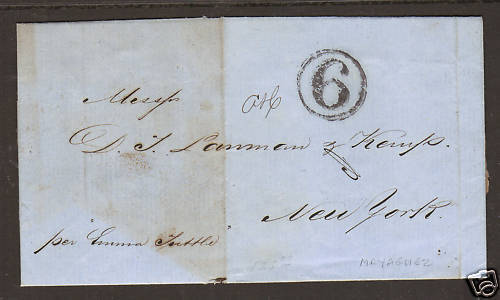 6
Messrs
D. T. Lanman & Kemp.
New York.
per "Emma Tuttle"
MAYAGUEZ